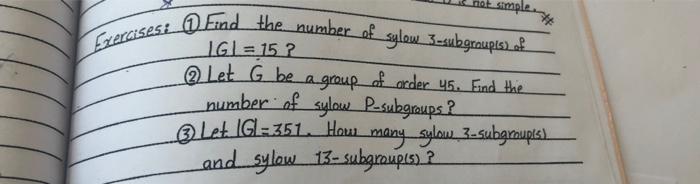 is not simple.
Exercises: ① Find the number of sylow 3-subgroup(s) of
|G| = 15 ?
② Let G be a group of order 45. Find the
number of sylow P-subgroups ?
③ Let |G|=351. How many sylow 3-subgroup(s)
and sylow 13-subgroup(s) ?